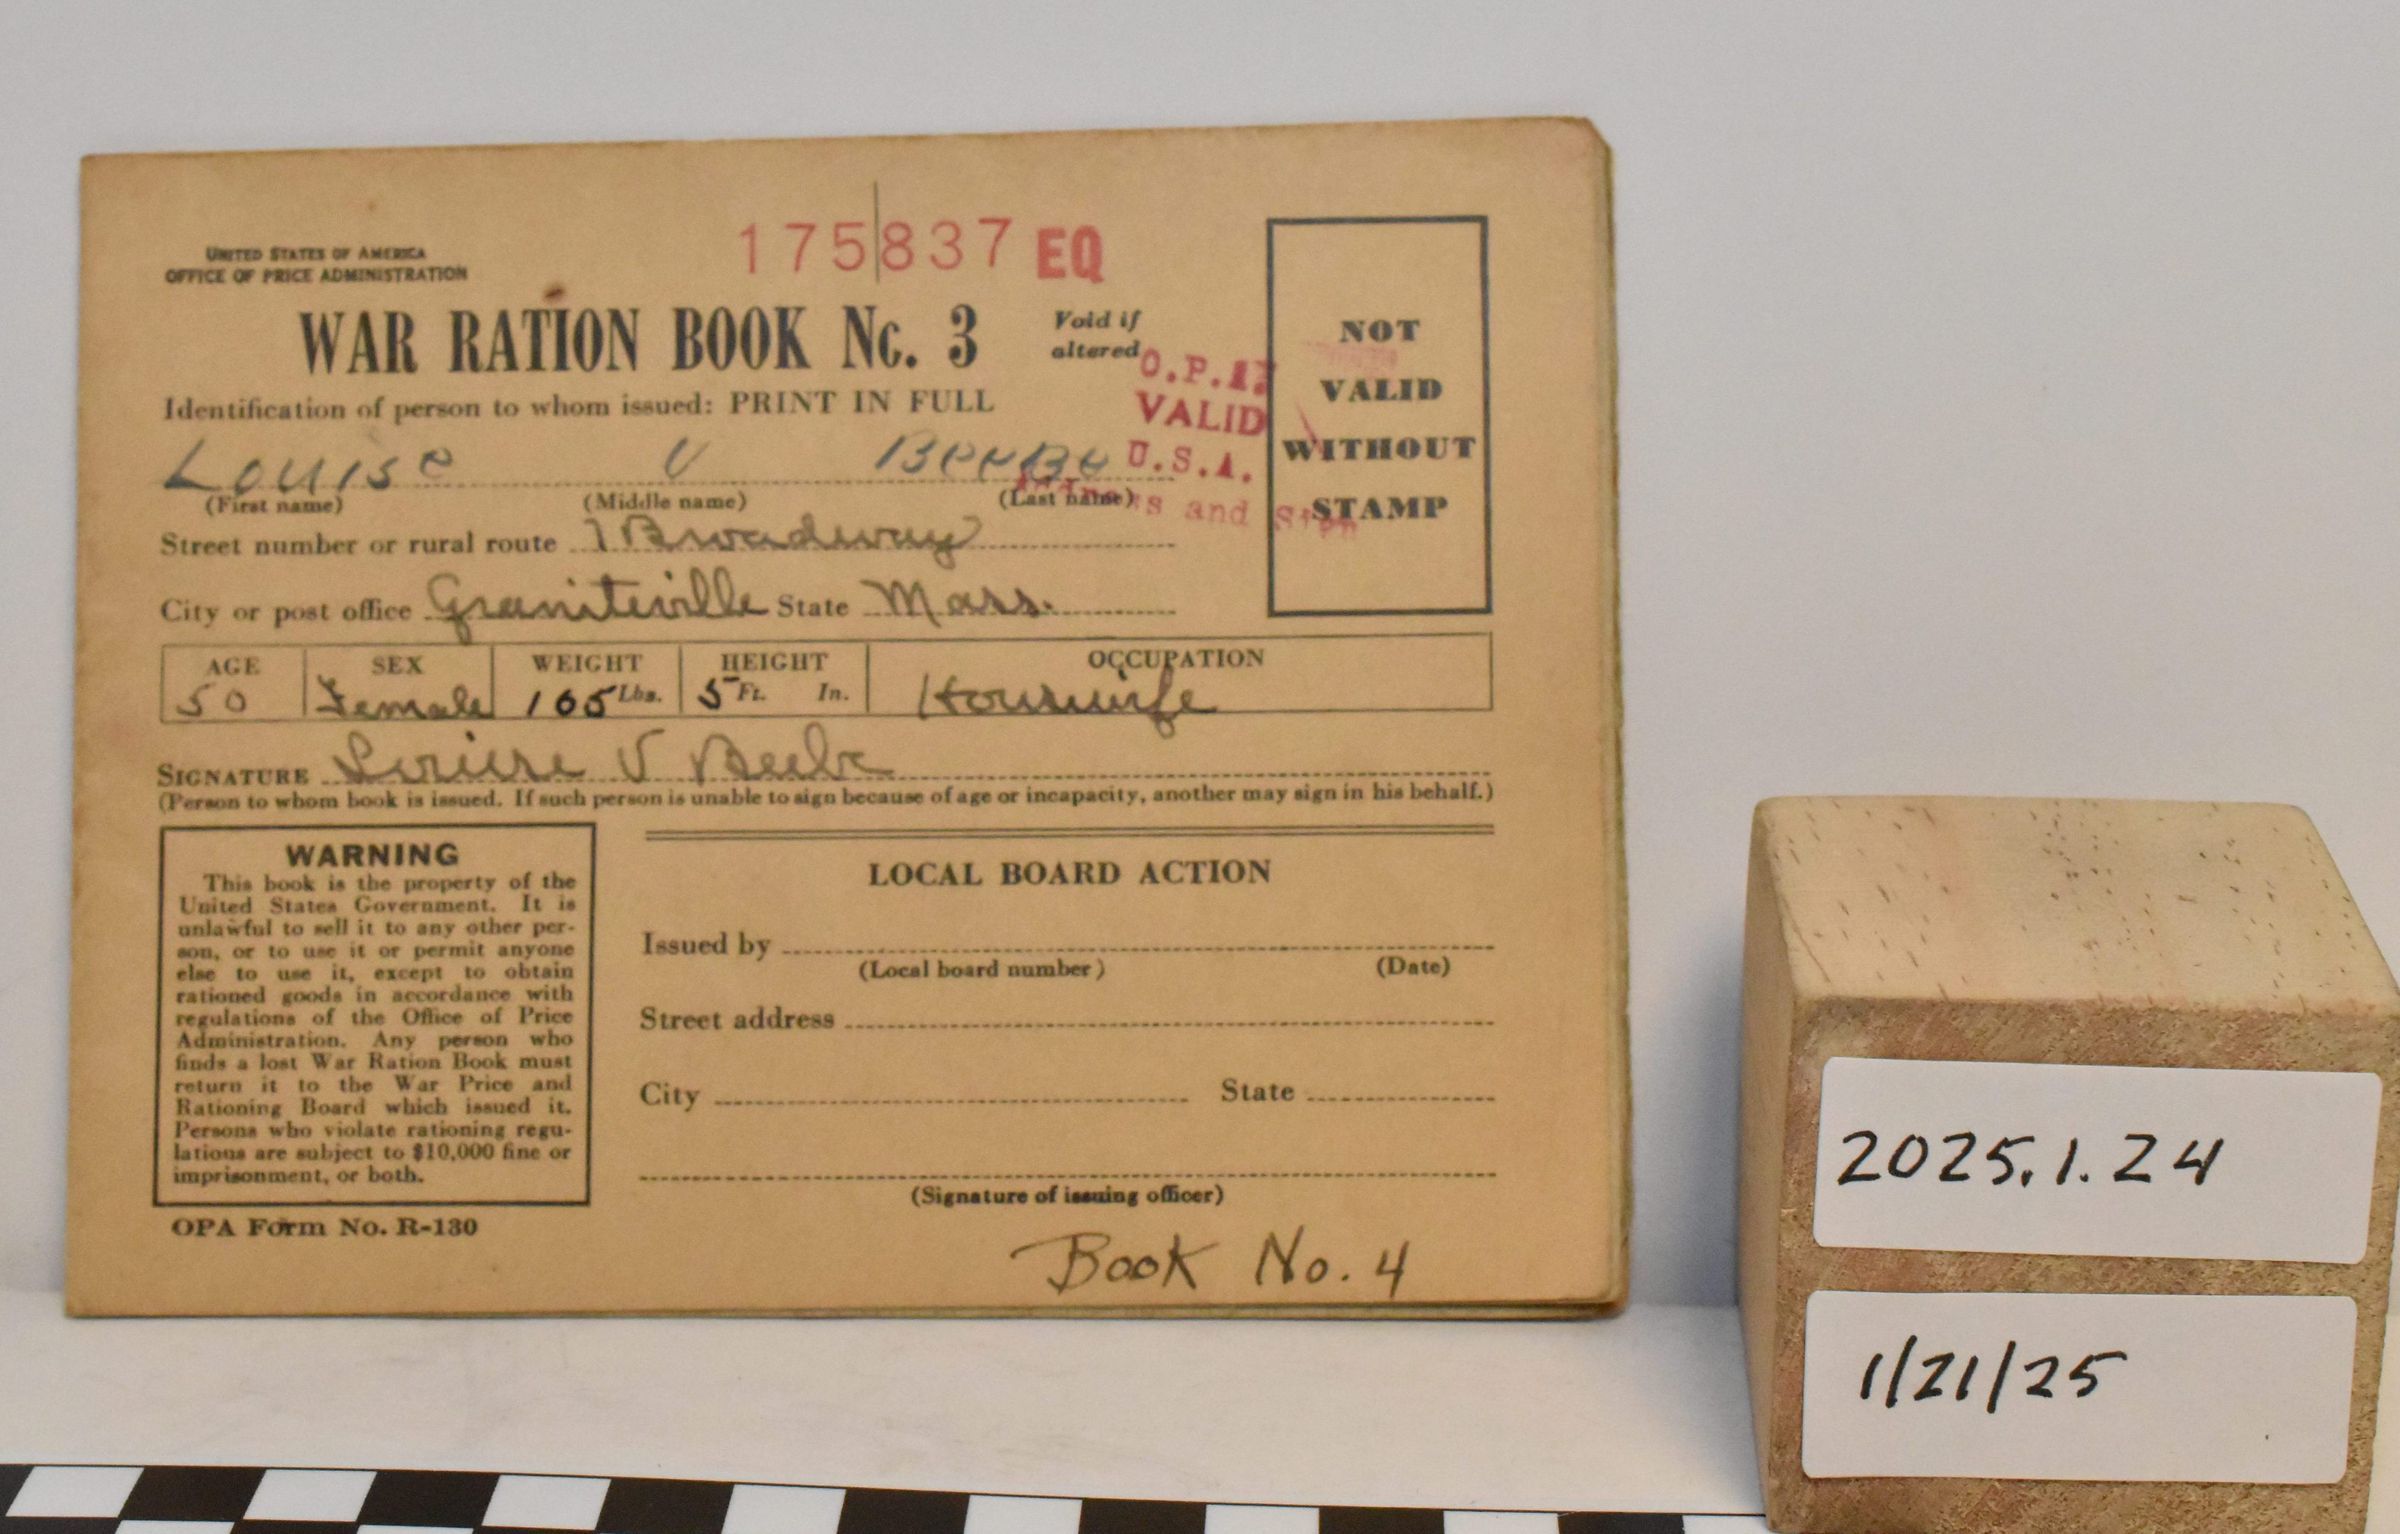 UNITED STATES OF AMERICA
OFFICE OF PRICE ADMINISTRATION
175837 EQ
WAR RATION BOOK No. 3
Void if
altered
Identification of person to whom issued: PRINT IN FULL
O.P.A.
VALID
U.S.A.
and Sign
NOT
VALID
WITHOUT
STAMP
Louise V Beebe
(First name) (Middle name) (Last name)
Street number or rural route 1 Broadway
City or post office Graniteville State Mass.
AGE SEX WEIGHT HEIGHT OCCUPATION
50 Female 105 Lbs. 5 Ft. In. Housewife
SIGNATURE Louise V Beebe
(Person to whom book is issued. If such person is unable to sign because of age or incapacity, another may sign in his behalf.)
WARNING
This book is the property of the
United States Government. It is
unlawful to sell it to any other per-
son, or to use it or permit anyone
else to use it, except to obtain
rationed goods in accordance with
regulations of the Office of Price
Administration. Any person who
finds a lost War Ration Book must
return it to the War Price and
Rationing Board which issued it.
Persons who violate rationing regu-
lations are subject to $10,000 fine or
imprisonment, or both.
OPA Form No. R-130
LOCAL BOARD ACTION
Issued by
(Local board number) (Date)
Street address
City State
(Signature of issuing officer)
Book No. 4
2025.1.24
1/21/25